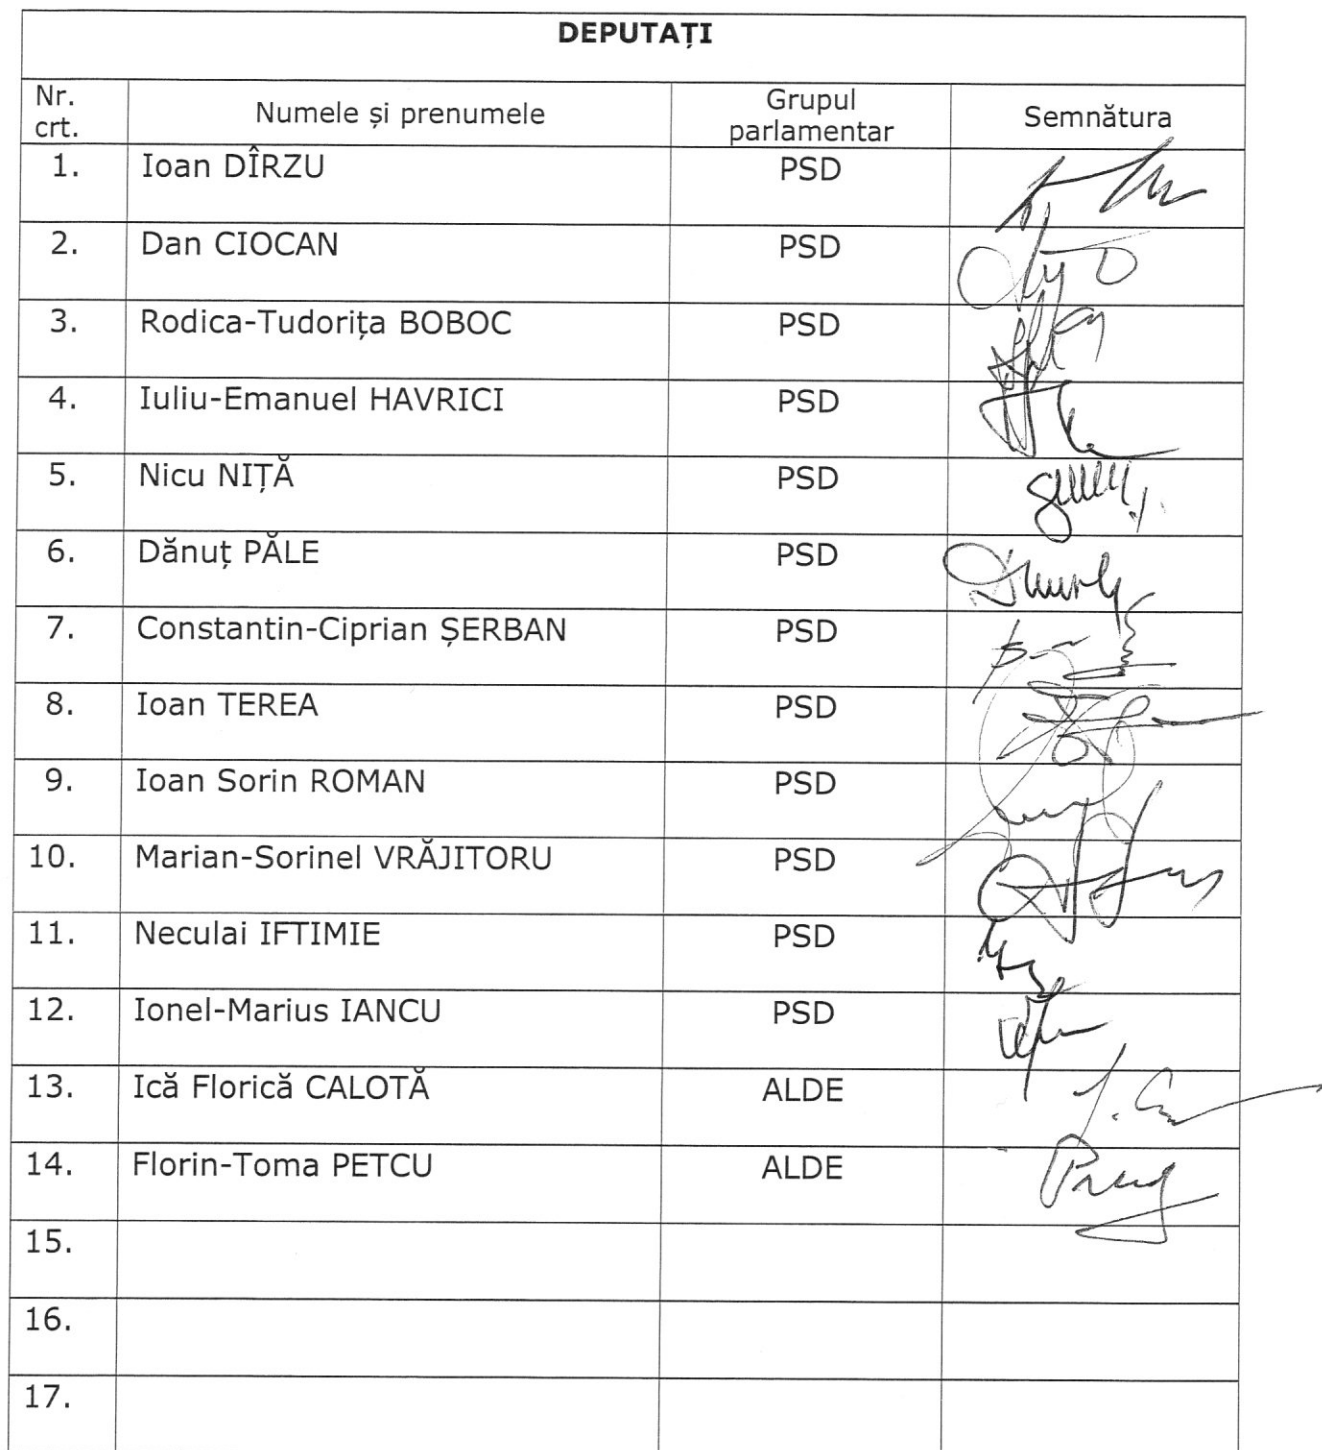 DEPUTAȚI
Nr. crt. Numele și prenumele Grupul parlamentar Semnătura
1. Ioan DÎRZU PSD
2. Dan CIOCAN PSD
3. Rodica-Tudorița BOBOC PSD
4. Iuliu-Emanuel HAVRICI PSD
5. Nicu NIȚĂ PSD
6. Dănuț PĂLE PSD
7. Constantin-Ciprian ȘERBAN PSD
8. Ioan TEREA PSD
9. Ioan Sorin ROMAN PSD
10. Marian-Sorinel VRĂJITORU PSD
11. Neculai IFTIMIE PSD
12. Ionel-Marius IANCU PSD
13. Ică Florică CALOTĂ ALDE
14. Florin-Toma PETCU ALDE
15.
16.
17.